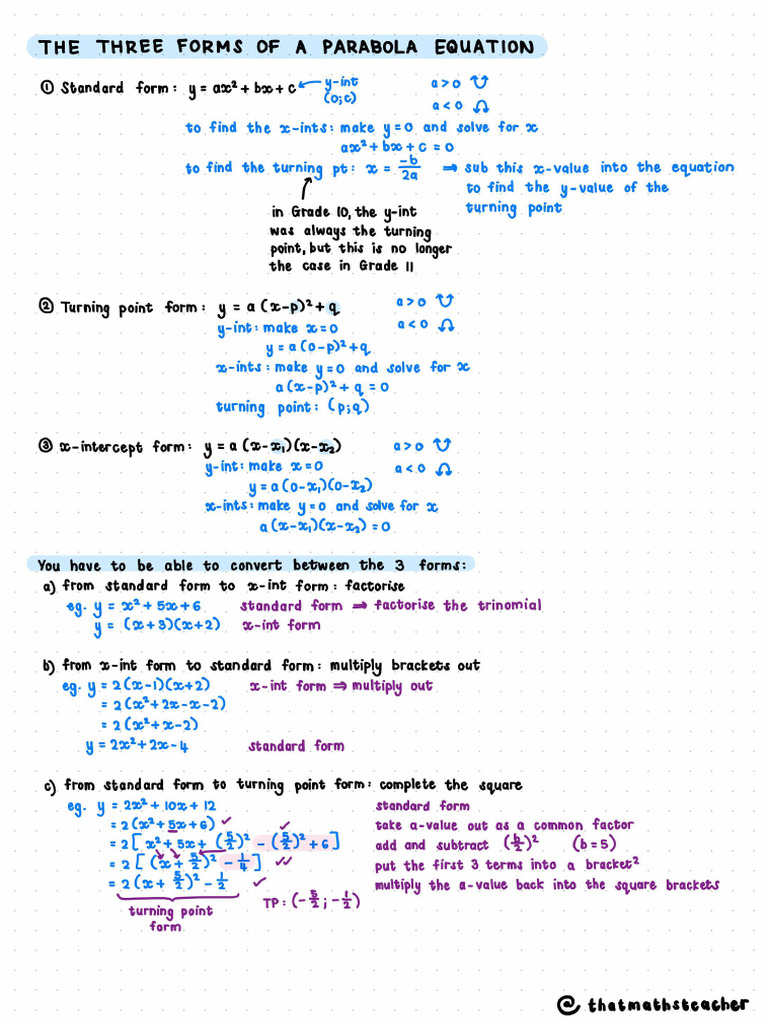 THE THREE FORMS OF A PARABOLA EQUATION
① Standard form: y = ax² + bx + c ← y-int (0;c)
a > 0
a < 0
to find the x-ints: make y=0 and solve for x
ax² + bx + c = 0
to find the turning pt: x = -b/2a ⇒ sub this x-value into the equation
to find the y-value of the
turning point
in Grade 10, the y-int
was always the turning
point, but this is no longer
the case in Grade 11
② Turning point form: y = a(x-p)² + q
a > 0
a < 0
y-int: make x=0
y = a(0-p)² + q
x-ints: make y=0 and solve for x
a(x-p)² + q = 0
turning point: (p;q)
③ x-intercept form: y = a(x-x₁)(x-x₂)
a > 0
a < 0
y-int: make x=0
y = a(0-x₁)(0-x₂)
x-ints: make y=0 and solve for x
a(x-x₁)(x-x₂) = 0
You have to be able to convert between the 3 forms:
a) from standard form to x-int form: factorise
eg. y = x² + 5x + 6 standard form ⇒ factorise the trinomial
y = (x+3)(x+2) x-int form
b) from x-int form to standard form: multiply brackets out
eg. y = 2(x-1)(x+2) x-int form ⇒ multiply out
= 2(x² + 2x - x - 2)
= 2(x² + x - 2)
y = 2x² + 2x - 4 standard form
c) from standard form to turning point form: complete the square
eg. y = 2x² + 10x + 12 standard form
= 2(x² + 5x + 6) ✓ take a-value out as a common factor
= 2[x² + 5x + (5/2)² - (5/2)² + 6] ✓ add and subtract (b/2)² (b = 5)
= 2[(x + 5/2)² - 1/4] ✓✓ put the first 3 terms into a bracket²
= 2(x + 5/2)² - 1/2 ✓ multiply the a-value back into the square brackets
turning point
form
TP: (-5/2 ; -1/2)
@thatmathsteacher